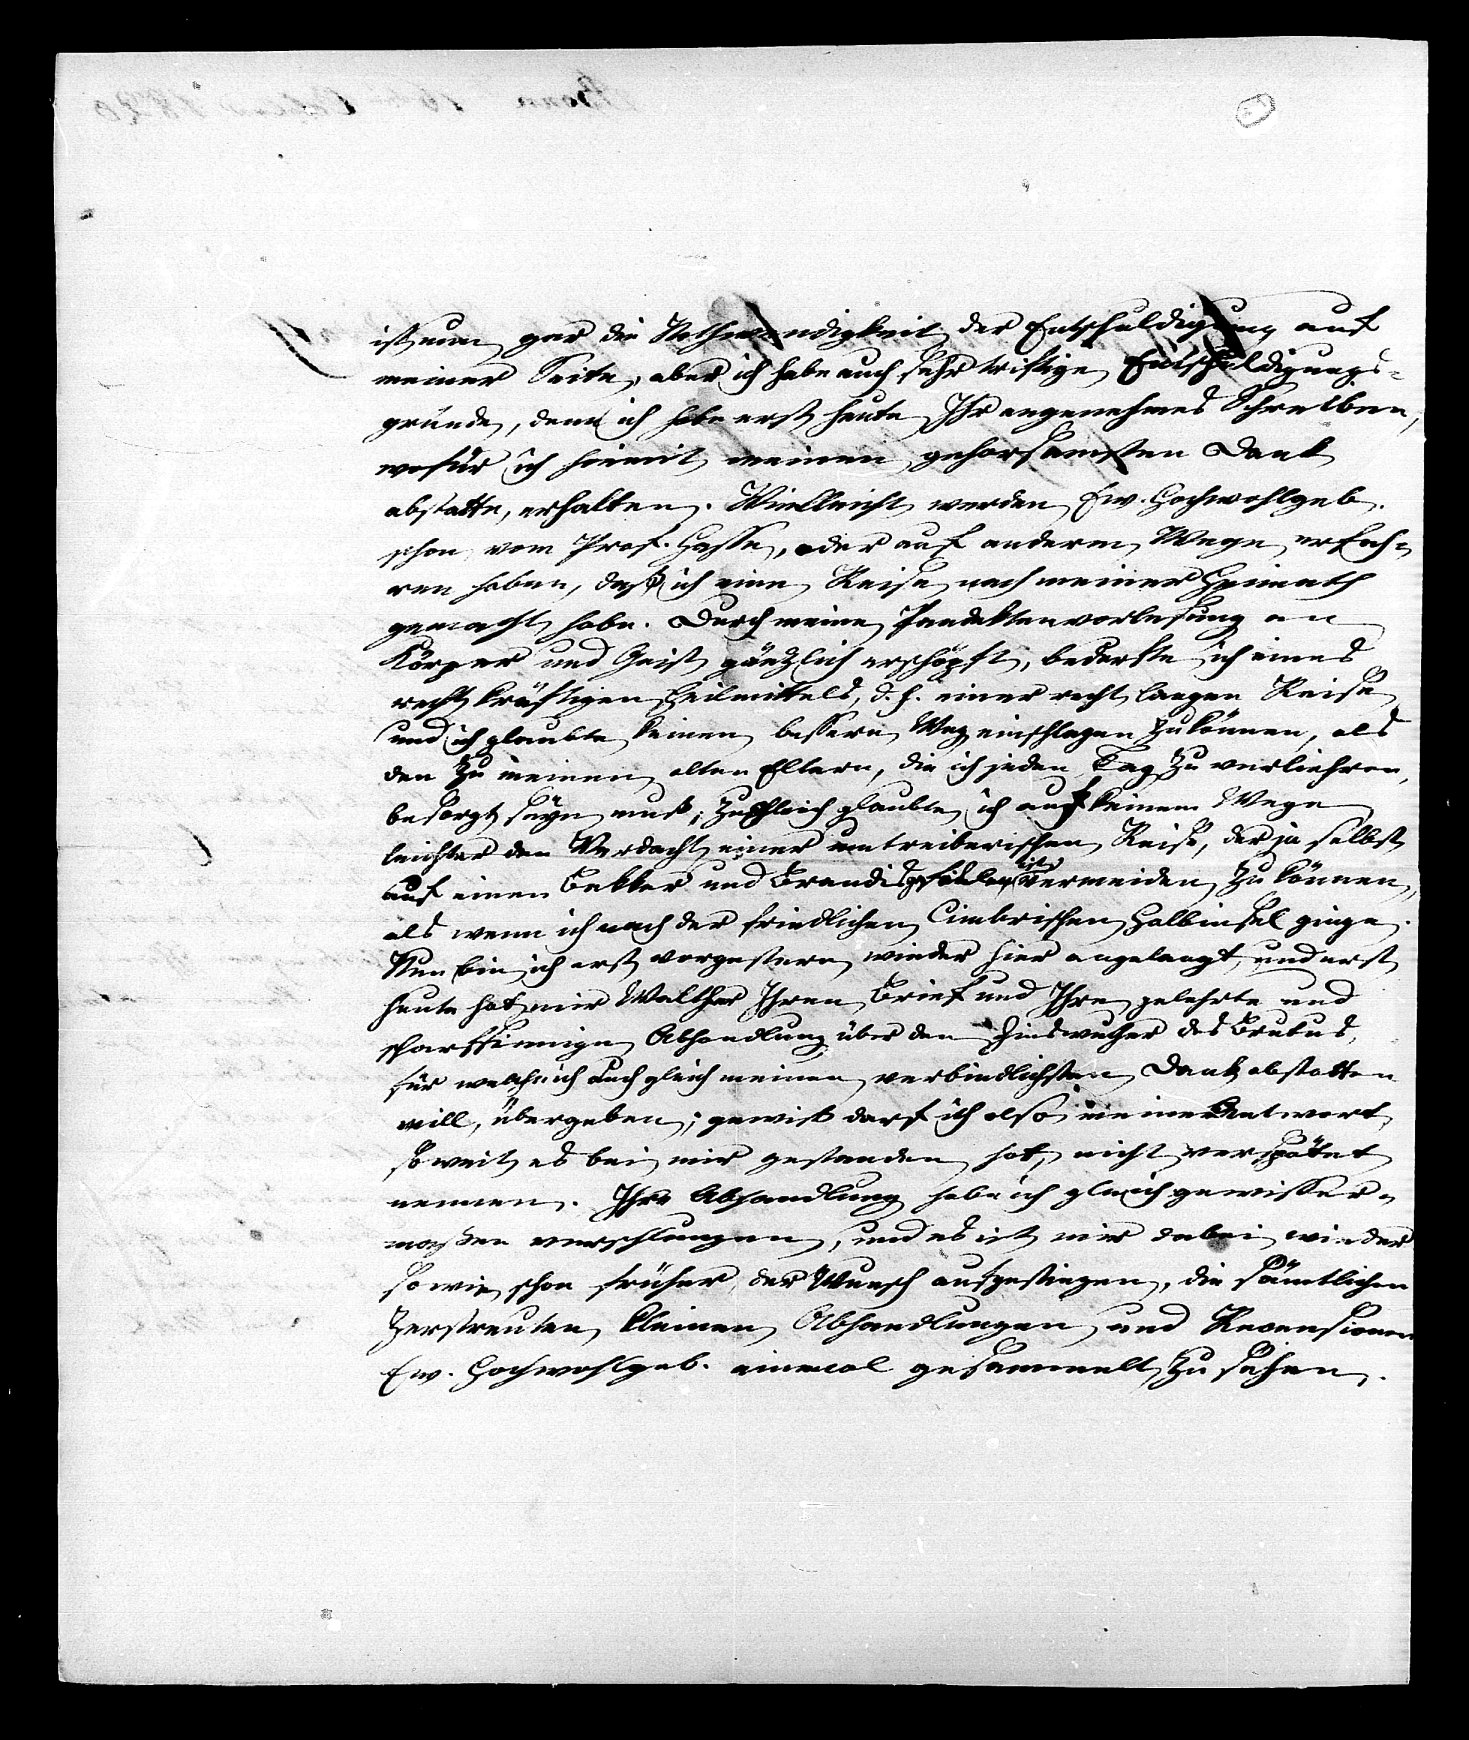 ist nun gar die Nothwendigkeit der Entschuldigung auf
meiner Seite, aber ich habe auch sehr triftige Entschuldigungs-
gründe, denn ich habe erst heute Ihr angenehmes Schreiben,
wofür ich hiemit meinen gehorsamsten Dank
abstatte, erhalten. Vielleicht werden Ew. Hochwohlgeb.
schon vom Prof. Hasse, oder auf anderem Wege erfah-
ren haben, daß ich eine Reise nach meiner Heimath
gemacht habe. Durch meine Pandektenvorlesung an
Körper und Geist gänzlich erschöpft, bedarfte ich eines
recht kräftigen Heilmittels, d. h. einer recht langen Reise
und ich glaubte keinen bessern Weg einschlagen zu können, als
den zu meinen alten Eltern, die ich jeden Tag zu verliehren,
besorgt seyn muß; zugleich glaubte ich auf keinem Wege
leichter den Verdacht einer umtreiberischen Reise, der ja selbst
auf einen Bekker und Brandis gefallen ist vermeiden zu können,
als wenn ich nach der friedlichen Cimbrischen Halbinsel ginge.
Nun bin ich erst vorgestern wieder hier angelangt, und erst
heute hat mir Walther Ihren Brief und Ihre gelehrte und
scharfsinnige Abhandlung über den Zinswucher des Brutus,
für welche ich auch gleich meinen verbindlichsten Dank abstatten
will, übergeben; gewiß darf ich also meine Antwort,
soweit es bei mir gestanden hat, nicht verspätet
nennen. Ihre Abhandlung habe ich gleich gewisser-
maßen verschlungen, und es ist mir dabei wieder
so wie schon früher der Wunsch aufgestiegen, die sämtlichen
zerstreuten kleinen Abhandlungen und Recensionen
Ew. Hochwohlgeb. einmal gesammelt zu sehen.